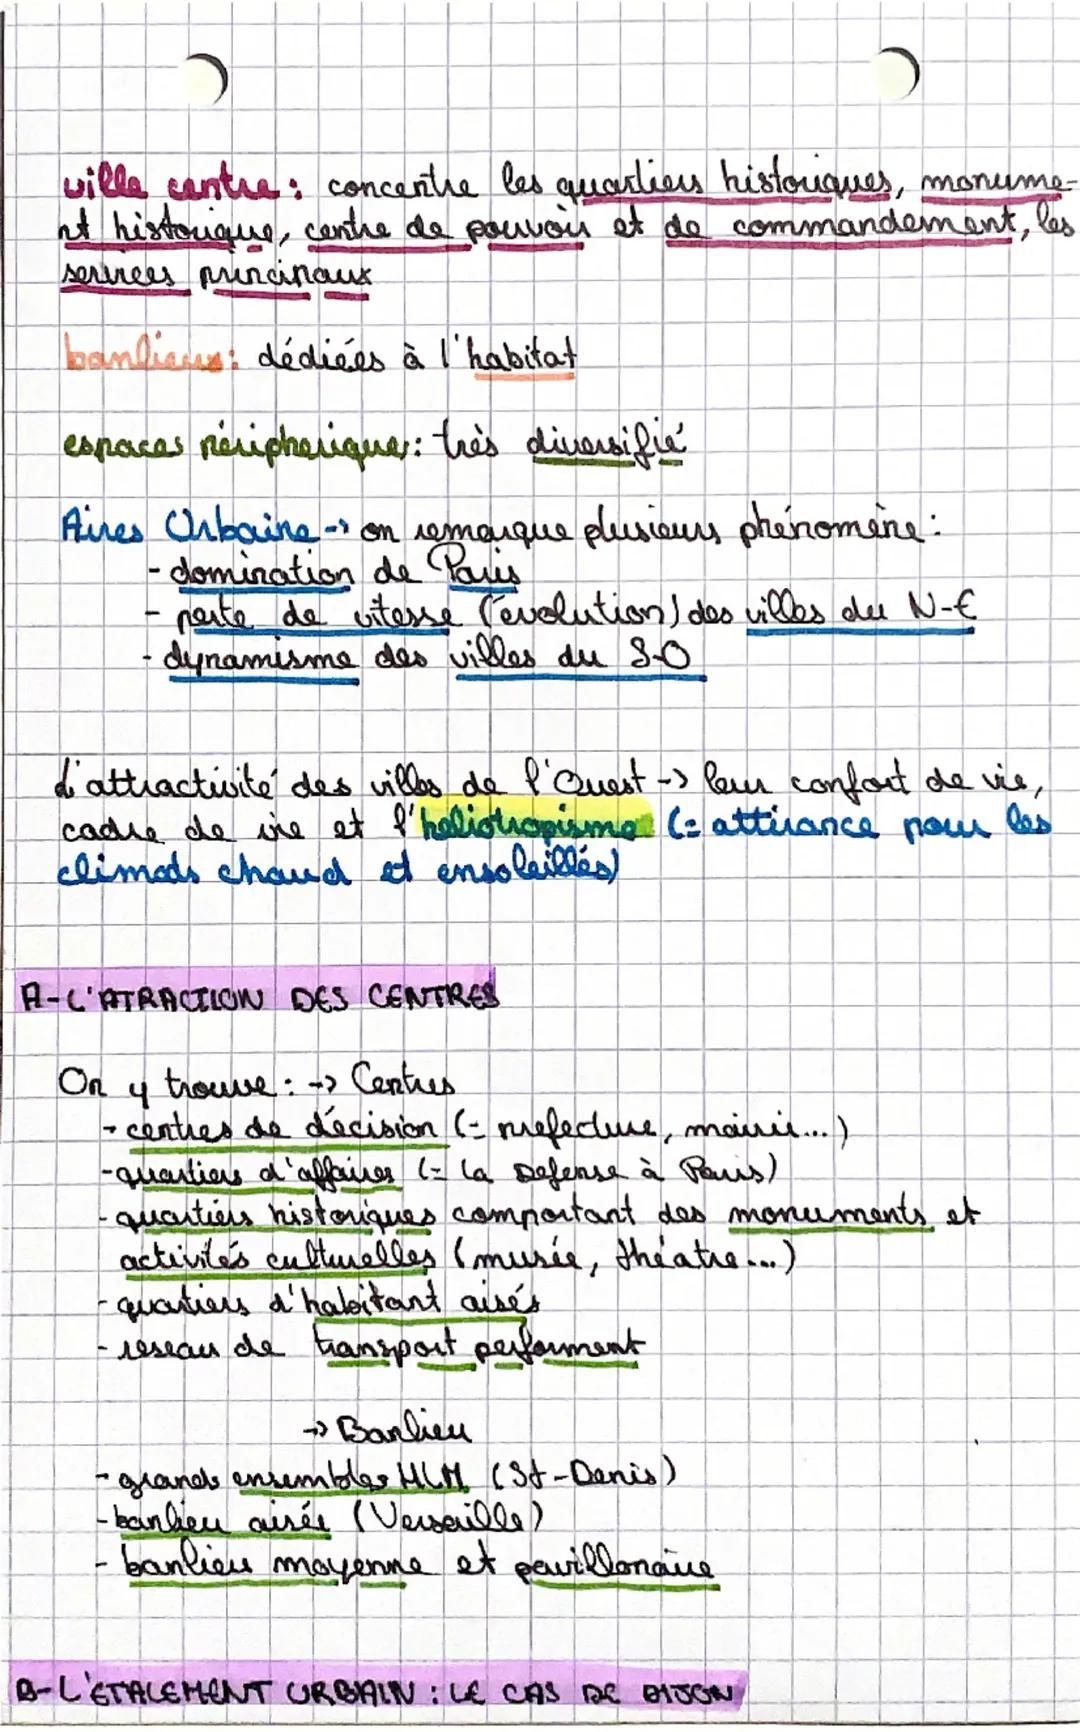 ville centre : concentre les quartiers historiques, monume-
nt historique, centre de pouvoir et de commandement, les
services principaux
banlieus : dédiées à l'habitat
espaces péripherique : très diversifié
Aires Urbaine -> on remarque plusieurs phénomène :
- domination de Paris
- perte de vitesse (évolution) des villes du N-E
- dynamisme des villes du S-O
L'attractivité des villes de l'Ouest -> leur confort de vie,
cadre de vie et l'heliotropisme (= attirance pour les
climats chaud et ensoleillés)
A-L'ATRACTION DES CENTRES
On y trouve : -> Centres
- centres de décision (= prefecture, mairie...)
- quartiers d'affaires (= La Défense à Paris)
- quartiers historiques comportant des monuments et
activités culturelles (musée, théatre...)
- quartiers d'habitant aisés
- réseau de transport performent
-> Banlieu
- grands ensembles HLM (St-Denis)
- banlieu aisée (Versaille)
- banlieu moyenne et pavillonaire
B-L'ÉTALEMENT URBAIN : LE CAS DE DIJON